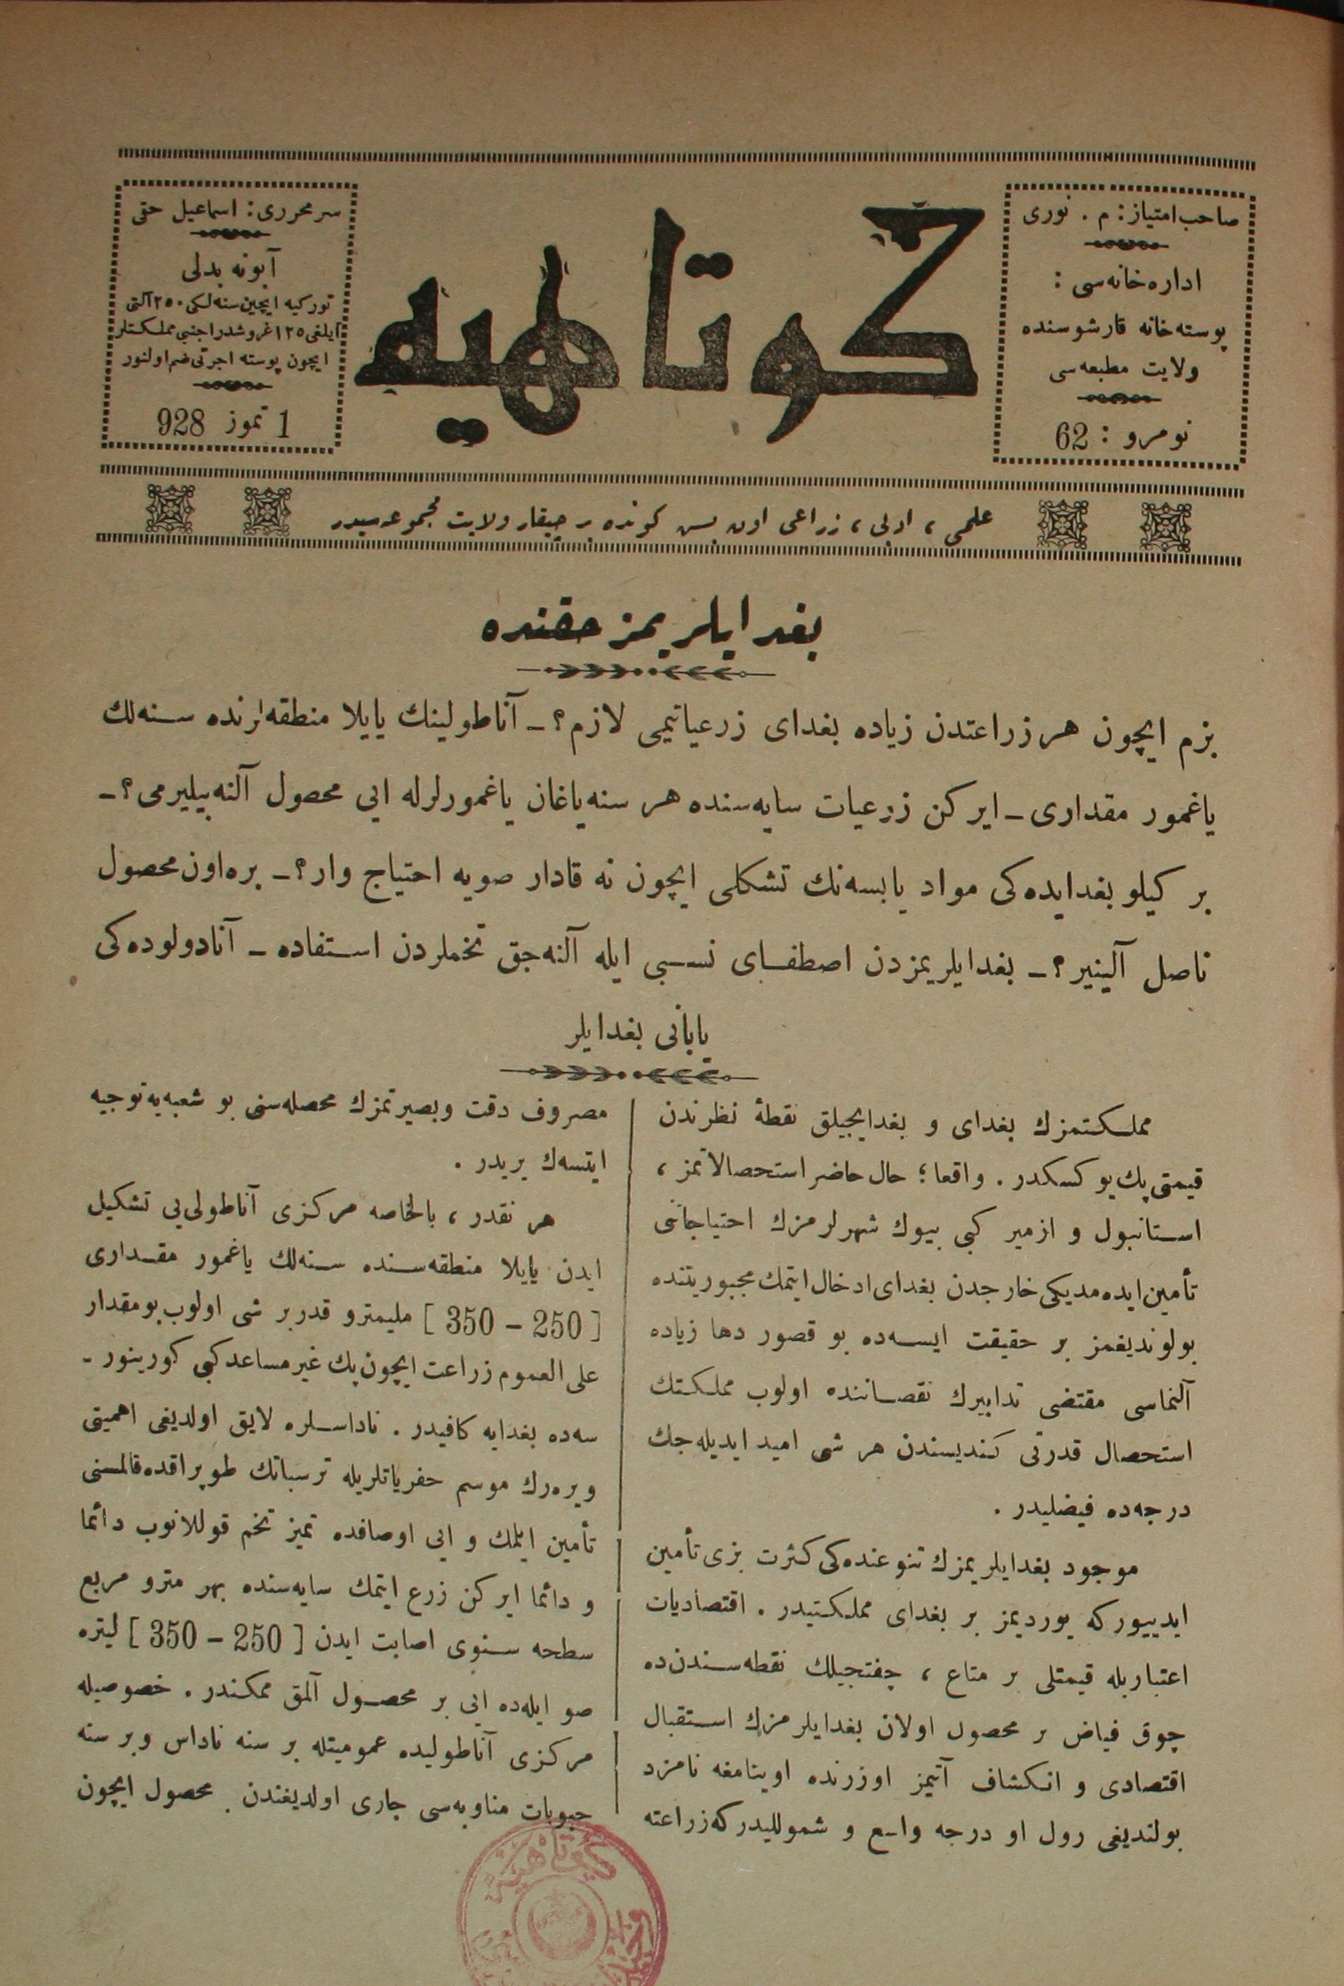 صاحب امتیاز: م. نوری
اداره خانه‌سی :
پوسته خانه قارشوسنده
ولایت مطبعه‌سی
نومرو : 62
کوتاهیه
سرمحرری: اسماعیل حقی
آبونه بدلی
تورکیه ایچین سنه‌لکی ۲۵۰ آلتی
آیلغی ۱۲۵ غروشدر اجنبی مملکتلر
ایچون پوسته اجرتی ضم اولنور
1 تموز 928
علمی ، ادبی ، زراعی اون بش کونده بر چیقار ولایت مجموعه‌سیدر
بغدایلریمز حقنده
بزم ایچون هر زراعتدن زیاده بغدای زرعیاتیمی لازم؟ ــ آناطولینك یایلا منطقه‌لرنده سنه‌لك
یاغمور مقداری ــ ایرکن زرعیات سایه‌سنده هر سنه یاغان یاغمورلرله ایی محصول آلنه‌بیلیرمی؟ ــ
بر کیلو بغدایده‌کی مواد یابسه‌نك تشکلی ایچون نه قادار صویه احتیاج وار؟ ــ بره اون محصول
ناصل آلینیر؟ ــ بغدایلریمزدن اصطفای نسبی ایله آلنه‌جق تخملردن استفاده ــ آنادولوده‌کی
یابانی بغدایلر
مملکتمزك بغدای و بغدایجیلق نقطهٔ نظرندن
قیمتی پك یوکسکدر . واقعا؛ حال حاضر استحصالاتمز ،
استانبول و ازمیر کبی بیوك شهرلرمزك احتیاجاتنی
تأمین ایده‌مدیکی خارجدن بغدای ادخال ایتمك مجبوریتنده
بولوندیغمز بر حقیقت ایسه‌ده بو قصور دها زیاده
آلنماسی مقتضی تدابیرك نقصاننده اولوب مملکتك
استحصال قدرتی کندیسندن هر شی امید ایدیله‌جك
درجه‌ده فیضلیدر .
موجود بغدایلریمزك تنوعنده‌کی کثرت بزی تأمین
ایدییورکه یوردیمز بر بغدای مملکتیدر . اقتصادیات
اعتباریله قیمتلی بر متاع ، چفتجیلك نقطه‌سندن‌ده
چوق فیاض بر محصول اولان بغدایلرمزك استقبال
اقتصادی و انکشاف آتیمز اوزرنده اوینامغه نامزد
بولندیغی رول او درجه واسع و شموللیدرکه زراعته
مصروف دقت وبصیرتمزك محصله‌سنی بو شعبه‌یه توجیه
ایتسه‌ك یریدر .
هر نقدر ، بالخاصه مرکزی آناطولی‌یی تشکیل
ایدن یایلا منطقه‌سنده سنه‌لك یاغمور مقداری
[ 250 – 350 ] ملیمترو قدر بر شی اولوب بومقدار
علی العموم زراعت ایچون پك غیر مساعد کبی کورینور ـ
سه‌ده بغدایه کافیدر . ناداسلره لایق اولدیغی اهمیتی
ویره‌رك موسم حفریاتلریله ترسباتك طوپراقده قالمسنی
تأمین ایلمك و ایی اوصافده تمیز تخم قوللانوب دائما
و دائما ایرکن زرع ایتمك سایه‌سنده بهر مترو مربع
سطحه سنوی اصابت ایدن [ 250 – 350 ] لیتره
صو ایله‌ده ایی بر محصول آلمق ممکندر . خصوصیله
مرکزی آناطولیده عمومیتله بر سنه ناداس وبر سنه
حبوبات مناوبه‌سی جاری اولدیغندن محصول ایچون
کوتاهیه